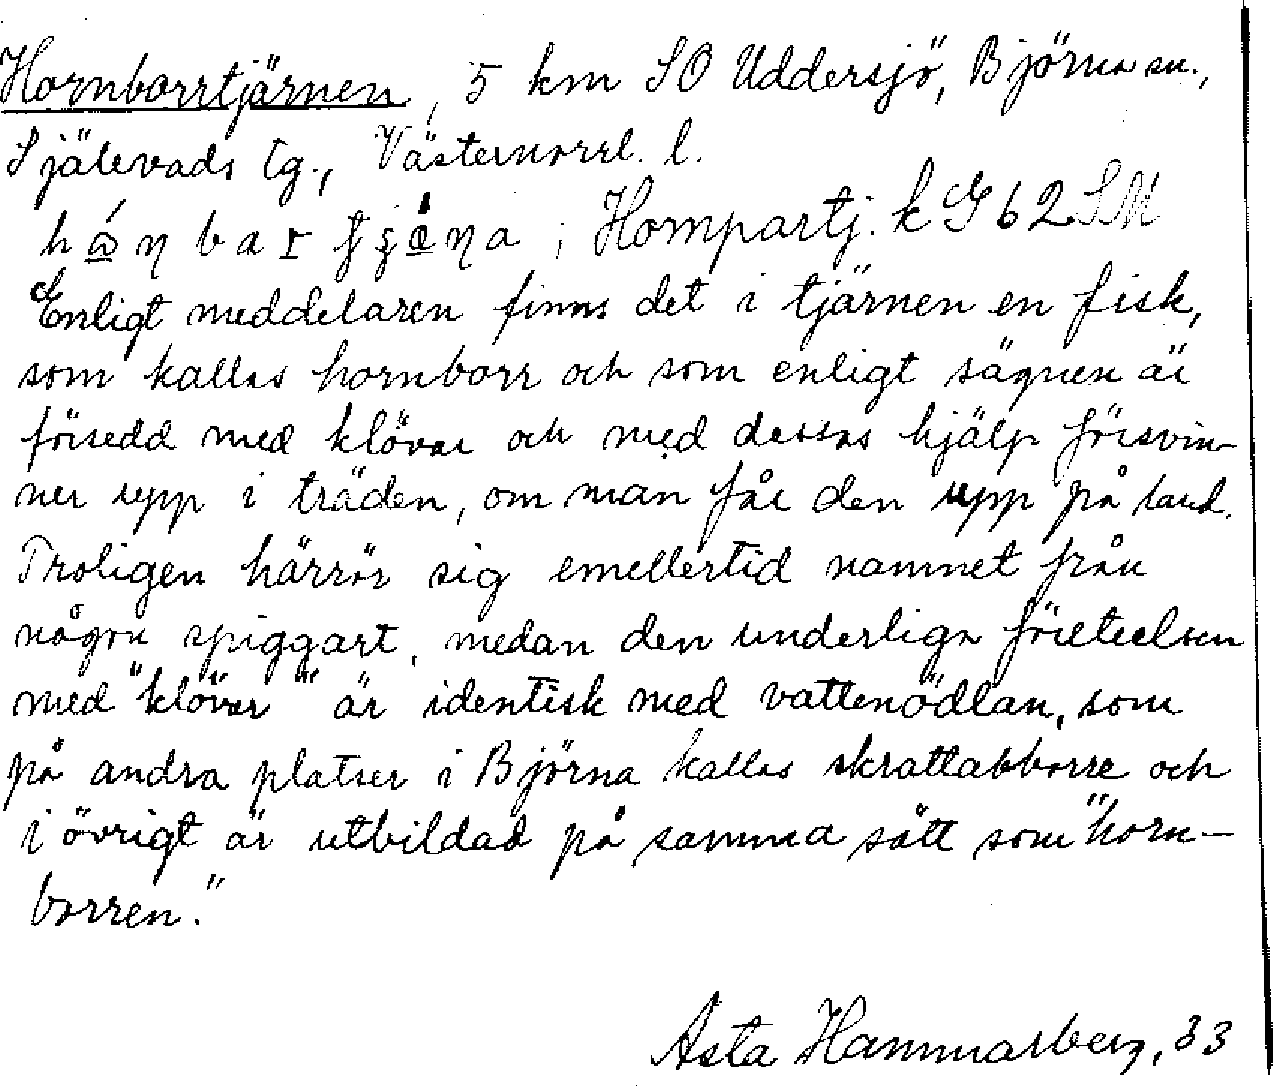 Hornborrtjärnen, 5 km SO Uddersjö, Björna sn.,
Själevads tg., Västernorrl. l.
; Hornpartj. k G 62 SM
Enligt meddelaren finns det i tjärnen en fisk,
som kallas hornborr och som enligt sägnen är
försedd med klövar och med dessas hjälp försvin-
ner upp i träden, om man får den upp på land.
Troligen härrör sig emellertid namnet från
någon spiggart, medan den underliga företeelsen
med "klövar" är identisk med vattenödlan, som
på andra platser i Björna kallas skrattabborre och
i övrigt är utbildad på samma sätt som "horn-
borren."
Asta Hammarberg, 33